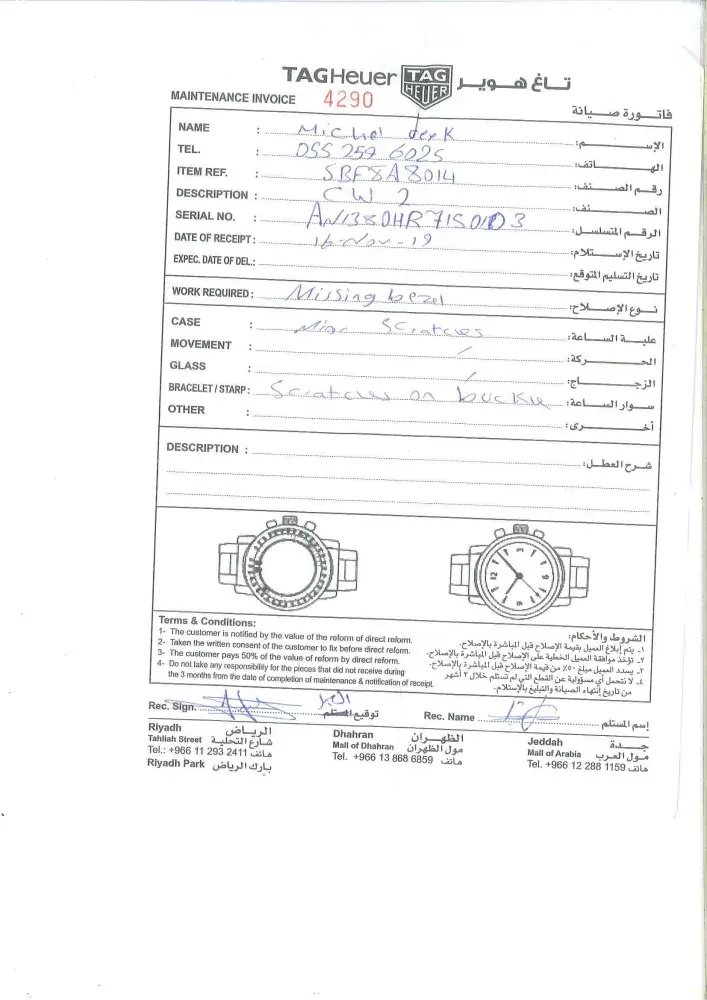 TAGHeuer TAG HEUER تـاغ هـويـر
MAINTENANCE INVOICE 4290 فاتـورة صـيـانة
NAME : Michel derk الإسـم:
TEL. : 055 259 6025 الهـاتف:
ITEM REF. : SBF8A8014 رقـم الصـنف:
DESCRIPTION : CW 2 الصـنف:
SERIAL NO. : الرقـم المتسلسـل:
DATE OF RECEIPT : 16-Nov-19 تاريخ الإسـتلام:
EXPEC. DATE OF DEL.: تاريخ التسليم المتوقع:
WORK REQUIRED : Missing bezel نـوع الإصـلاح:
CASE : Scratches علبـة السـاعة:
MOVEMENT : / الحـركة:
GLASS : / الزجـاج:
BRACELET / STARP : Scratches on buckle سـوار السـاعة:
OTHER : أخـرى:
DESCRIPTION : شـرح العطـل:
Terms & Conditions:
1- The customer is notified by the value of the reform of direct reform.
2- Taken the written consent of the customer to fix before direct reform.
3- The customer pays 50% of the value of reform by direct reform.
4- Do not take any responsibility for the pieces that did not receive during
the 3 months from the date of completion of maintenance & notification of receipt.
الشروط والأحكام:
١- يتم إبلاغ العميل بقيمة الإصلاح قبل المباشرة بالإصلاح.
٢- تؤخذ موافقة العميل الخطية على الإصلاح قبل المباشرة بالإصلاح.
٣- يسدد العميل مبلغ ٥٠٪ من قيمة الإصلاح قبل المباشرة بالإصلاح.
٤- لا نتحمل أي مسؤولية عن القطع التي لم تستلم خلال ٣ أشهر
من تاريخ إنتهاء الصيانة والتبليغ بالإستلام.
Rec. Sign. توقيع المستلم Rec. Name إسم المستلم
Riyadh الريـاض
Tahliah Street شارع التحلية
Tel.: +966 11 293 2411 هاتف
Riyadh Park بارك الرياض
Dhahran الظهـران
Mall of Dhahran مول الظهران
Tel. +966 13 868 6859 هاتف
Jeddah جـدة
Mall of Arabia مـول العرب
Tel. +966 12 288 1159 هاتف